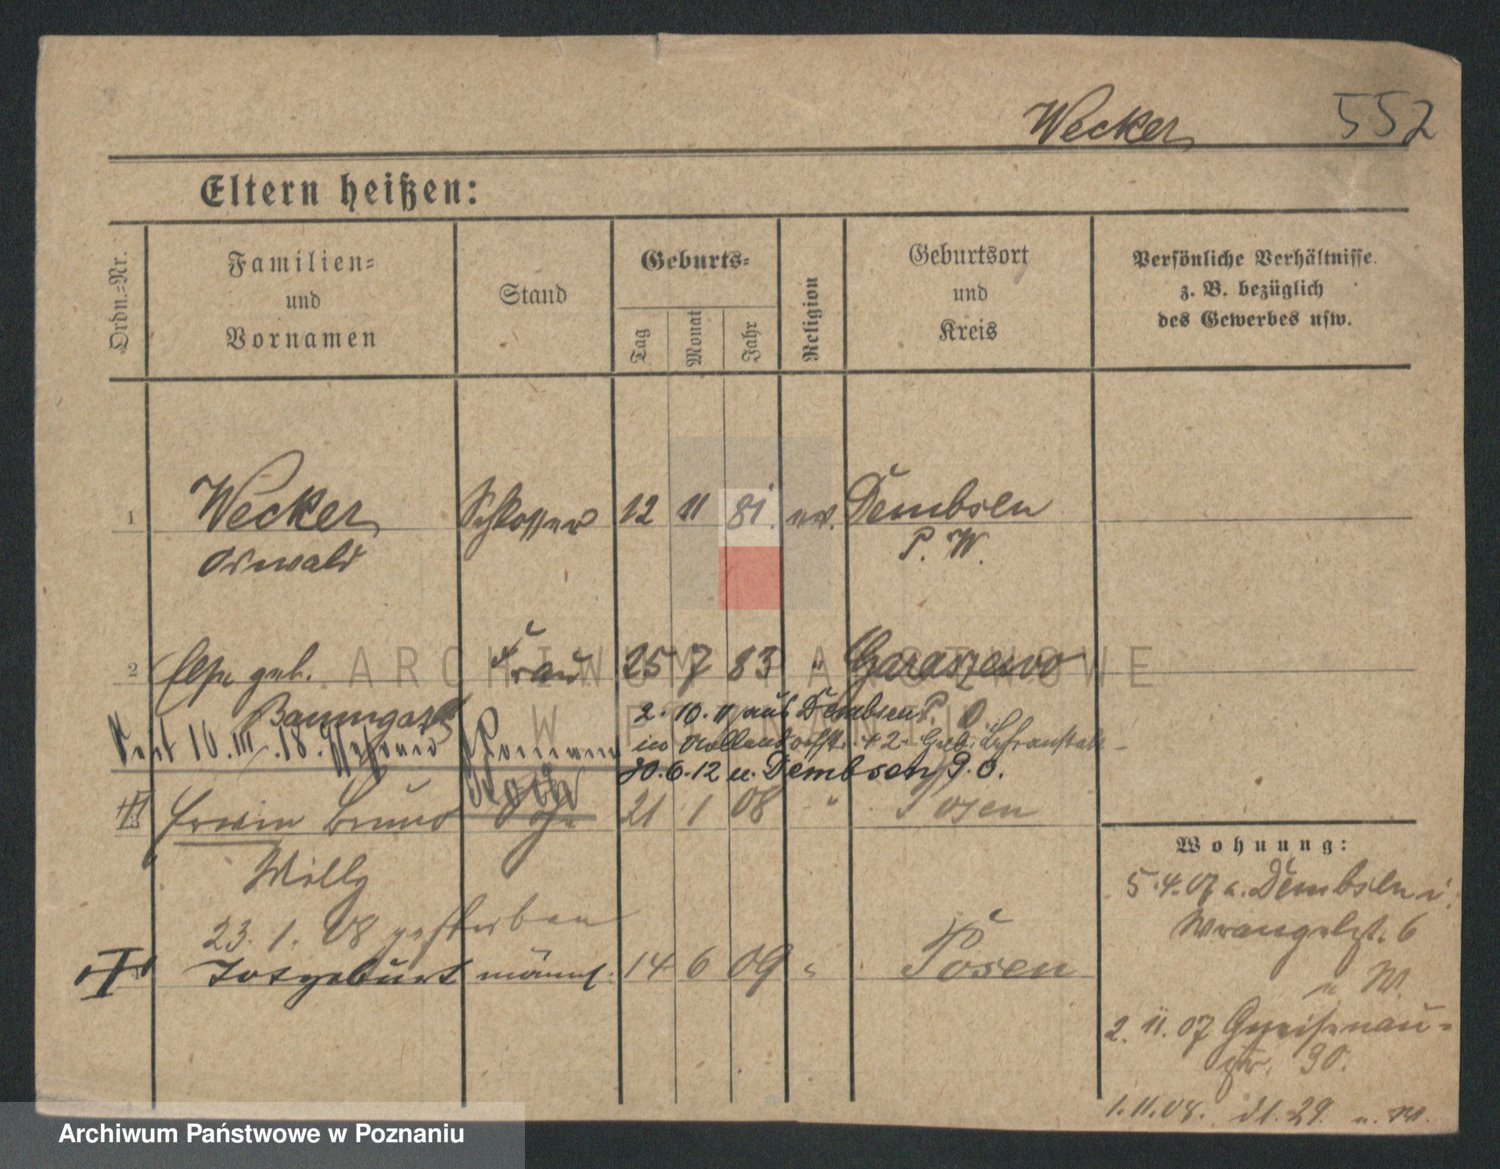 Wecker
552
Eltern heißen:
Ordn.-Nr.
Familien- und Vornamen
Stand
Geburts-
Tag
Monat
Jahr
Religion
Geburtsort und Kreis
Persönliche Verhältnisse z. B. bezüglich des Gewerbes usw.
1 Wecker Schlosser 12 11 81. ev. Dembsen
Oswald P. W.
2 Else geb. Frau 25 7 83 " Garaszewo
2. 10. 11 aus Dembsen P. O.
10. III. 18.
30. 6. 12 n. Dembsen P. O.
Erwin Bruno 21 1 08 " Posen
Willy
23. 1. 08 gestorben
Totgeburt männl. 14 6 09 " Posen
Wohnung:
5. 4. 07 a. Dembsen i.
Wrangelst. 6
n W.
2. 11. 07 Gneisenau-
str. 30.
1. 11. 08. 29. n. W.
ARCHIWUM PAŃSTWOWE
W POZNANIU
Archiwum Państwowe w Poznaniu